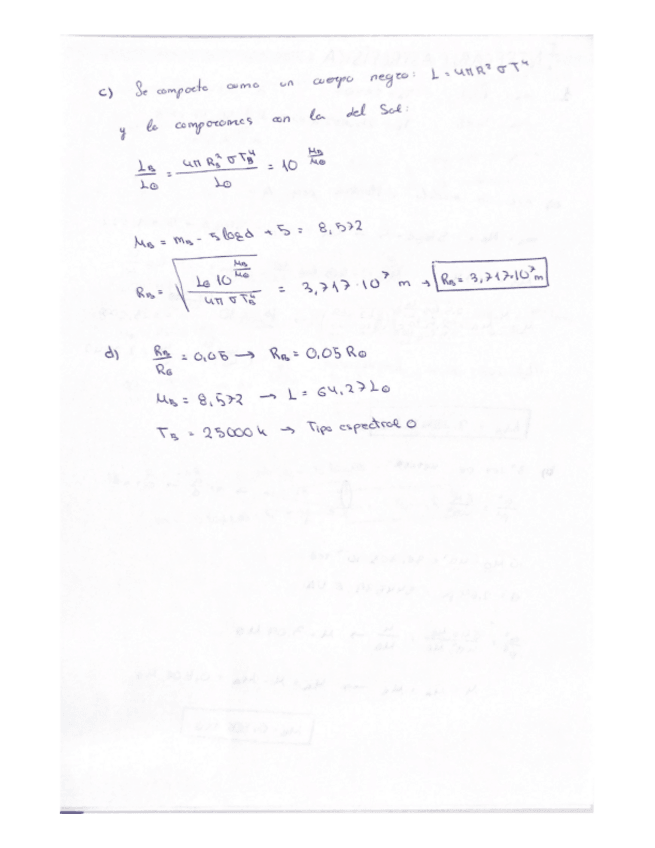 c) Se comporta como un cuerpo negro: L = 4πR² σT⁴
y lo comparamos con la del Sol:
L_B/L_⊙ = 4πR_B² σT_B⁴/L_⊙ = 10^(M_B/M_⊙)
M_B = m_B - 5 log d + 5 = 8,572
R_B = √(L_⊙ 10^(M_B/M_⊙)/4πσT_B⁴) = 3,717·10⁷ m → R_B = 3,717·10⁷ m
d) R_B/R_⊙ = 0,05 → R_B = 0,05 R_⊙
M_B = 8,572 → L = 64,27 L_⊙
T_B = 25000 k → Tipo espectral O